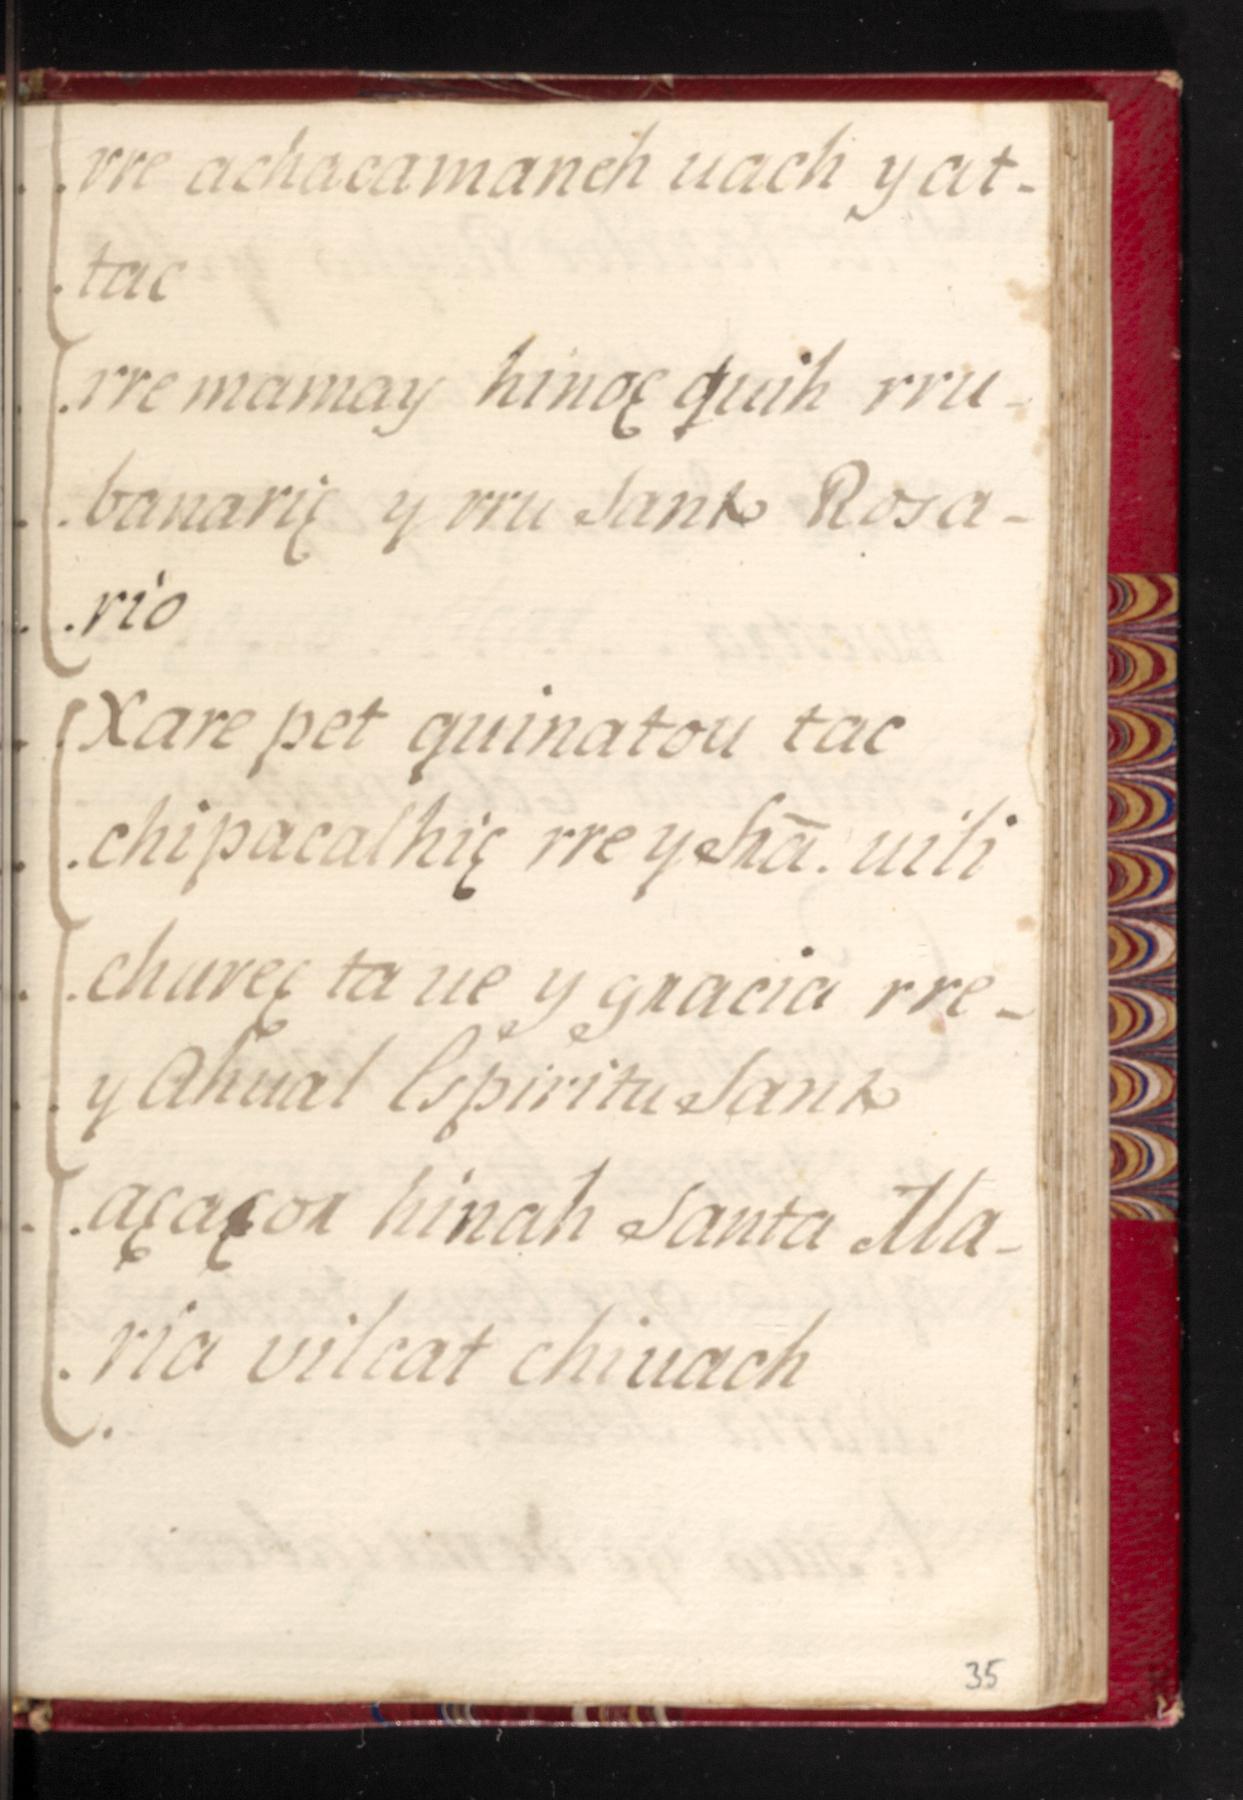 .rre achacamaneh uach y at-
.tac
.rre mamay hinoꜫ quih rru-
.banariꜫ y rru Santo Rosa-
.rio
Xare pet quinatou tac
.chipacalhiꜫ rre y Sta̅. uili
.chureꜫ ta ue y gracia rre-
y Ahual Espiritu Santo
.aꜫaꜫox hinah Santa Ma-
.ria vilcat chiuach
35